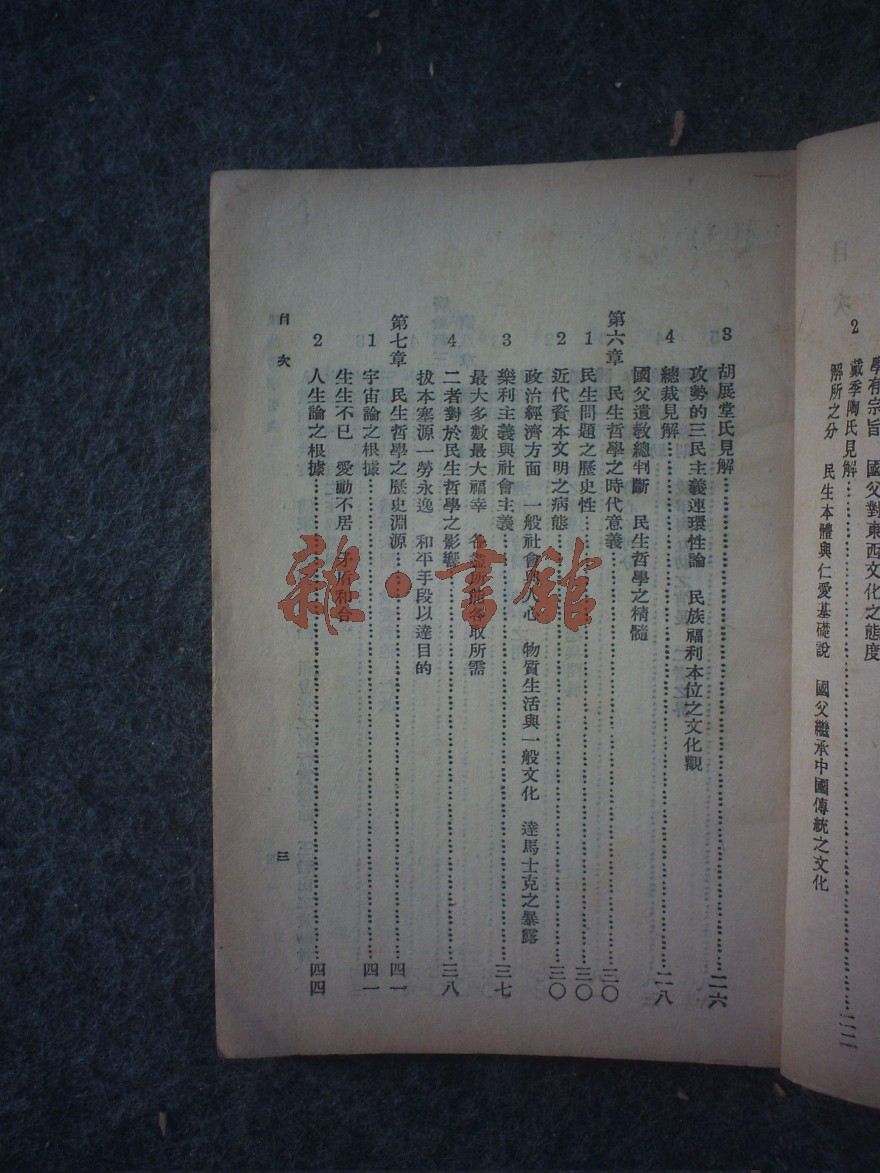 學有宗旨　國父對東西文化之態度
2　戴季陶氏見解……二二
解所之分　民生本體與仁愛基礎說　國父繼承中國傳統之文化
3　胡展堂氏見解……二六
攻勢的三民主義連環性論　民族福利本位之文化觀
4　總裁見解……二八
國父遺教總判斷　民生哲學之精髓
第六章　民生哲學之時代意義……三〇
1　民生問題之歷史性……三〇
2　近代資本文明之病態……三〇
政治經濟方面　一般社會與人心　物質生活與一般文化　達馬士克之暴露
3　樂利主義與社會主義……三七
最大多數最大福幸　各盡所能各取所需
4　二者對於民生哲學之影響……三八
拔本塞源一勞永逸　和平手段以達目的
第七章　民生哲學之歷史淵源……四一
1　宇宙論之根據……四一
生生不已　愛動不居　矛盾和合
2　人生論之根據……四四
目次
三
雜·書館